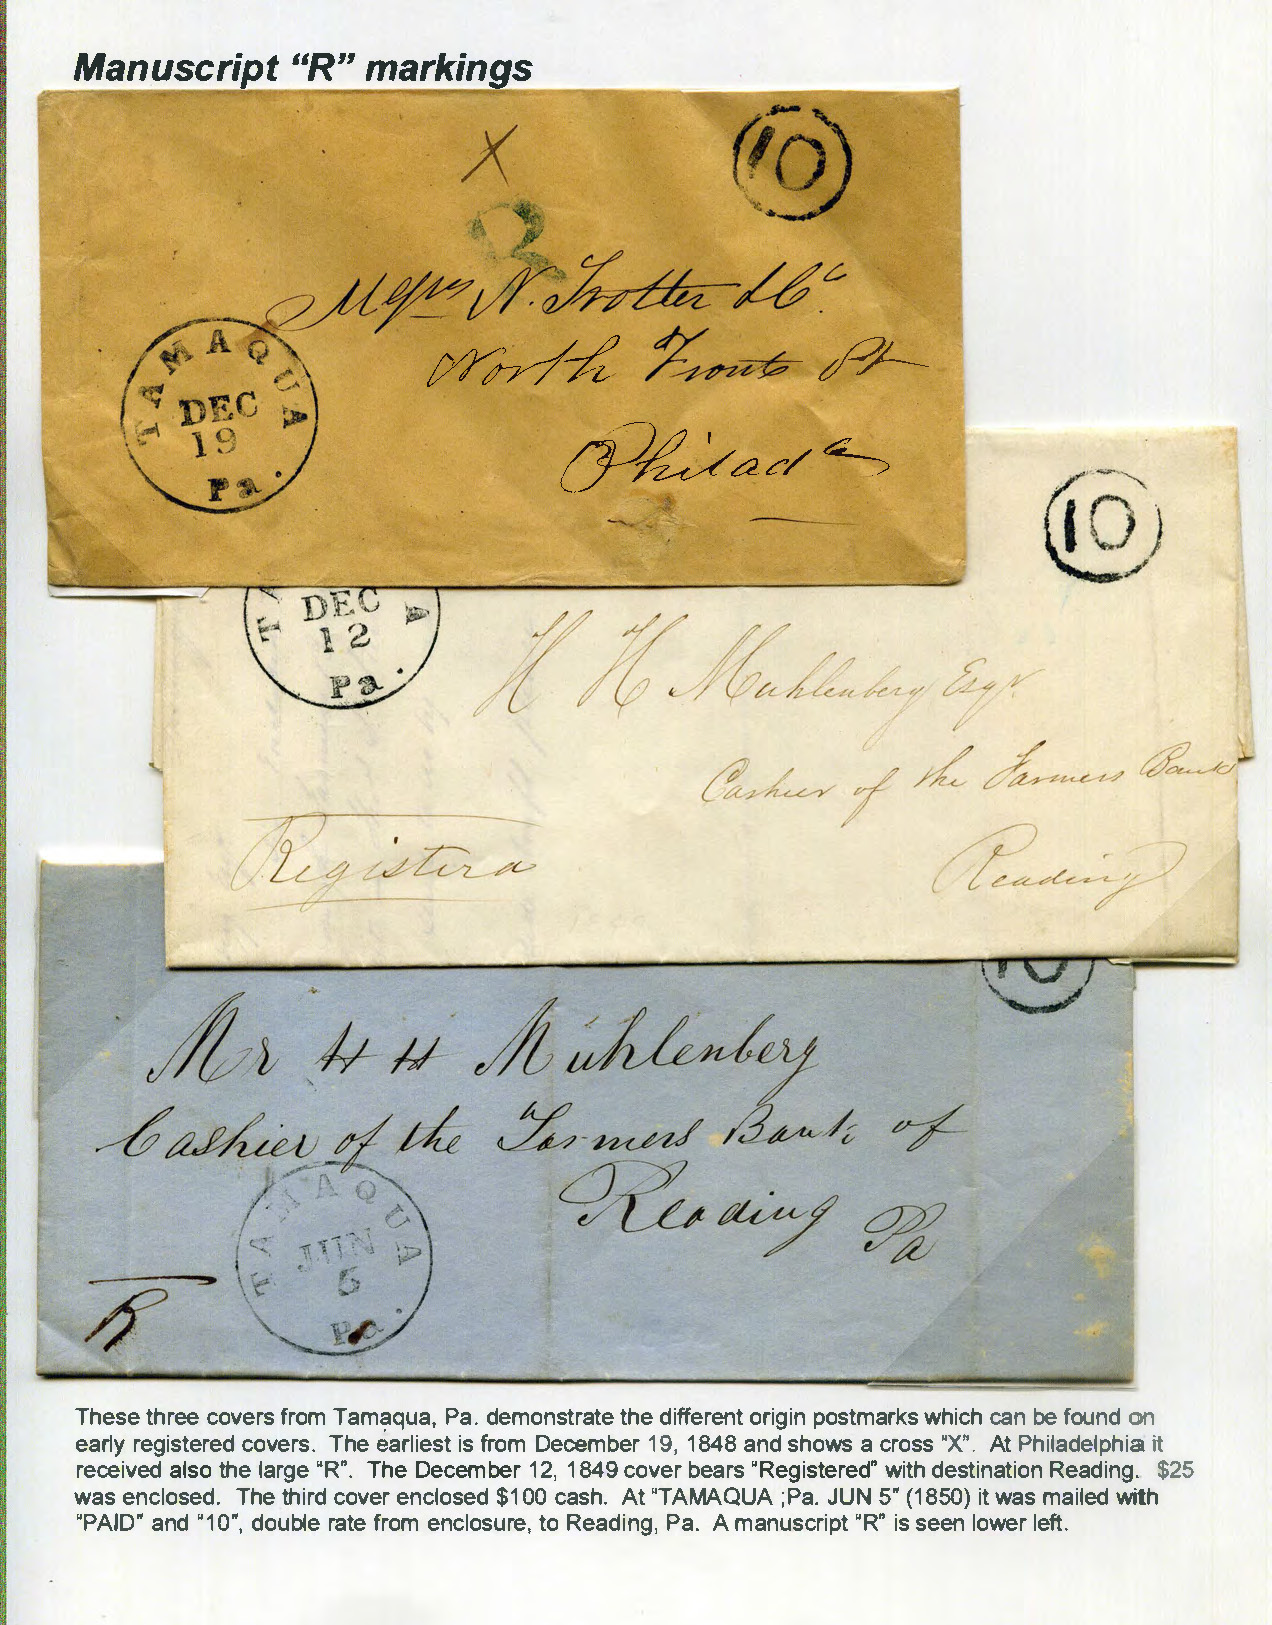 Manuscript “R” markings
10
X
R
Messrs N. Trotter & Co
North Front St
Philada
TAMAQUA
DEC
19
Pa.
10
TA A
DEC
12
Pa.
H H Muhlenberg Esqr.
Cashier of the Farmers Bank
Registerd
Reading
10
Mr H H Muhlenberg
Cashier of the Farmers Bank of
Reading
Pa
TAMAQUA
JUN
5
Pa.
R
These three covers from Tamaqua, Pa. demonstrate the different origin postmarks which can be found on
early registered covers. The earliest is from December 19, 1848 and shows a cross "X". At Philadelphia it
received also the large "R". The December 12, 1849 cover bears "Registered" with destination Reading. $25
was enclosed. The third cover enclosed $100 cash. At "TAMAQUA ;Pa. JUN 5" (1850) it was mailed with
"PAID" and "10", double rate from enclosure, to Reading, Pa. A manuscript "R" is seen lower left.